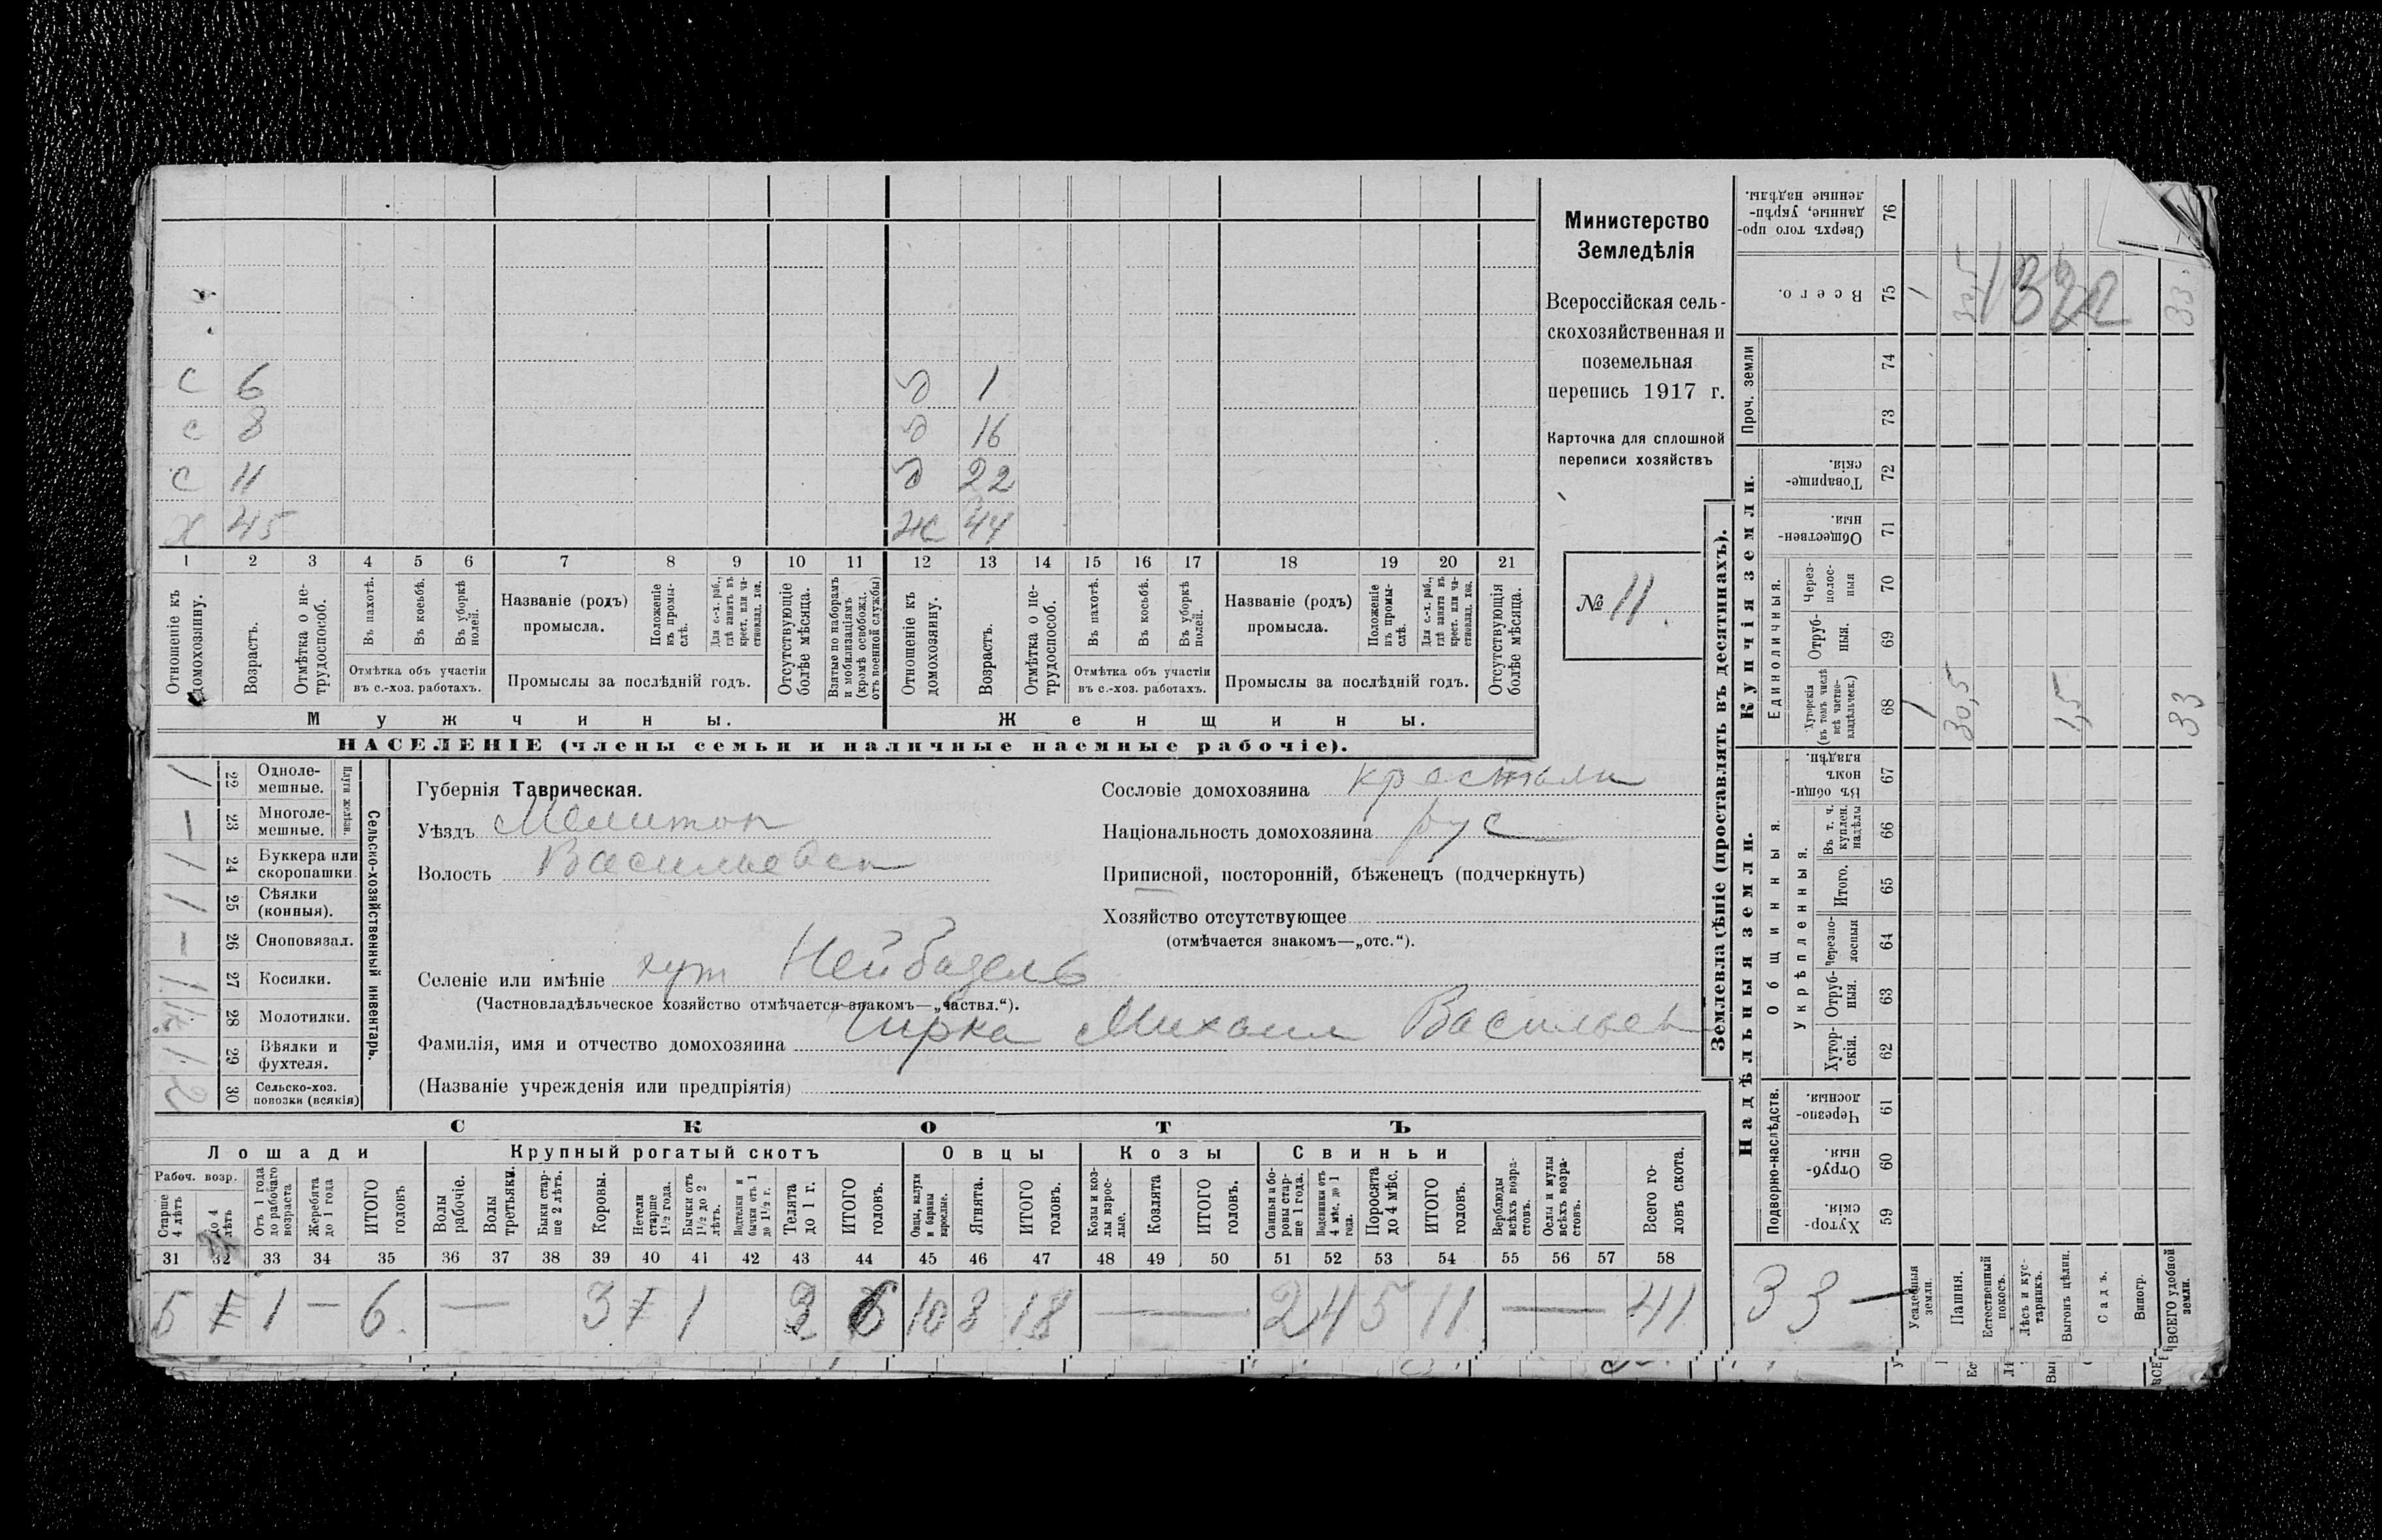 Министерство
Земледѣлія
Всероссійская сель-
скохозяйственная и
поземельная
перепись 1917 г.
Карточка для сплошной
переписи хозяйствъ
№ 11
с 6
с 8
с 11
Х 45
д 1
д 16
д 22
ж 44
1 2 3 4 5 6 7 8 9 10 11 12 13 14 15 16 17 18 19 20 21
Отношеніе къ домохозяину.
Возрастъ.
Отмѣтка о не-трудоспособ.
Въ пахотѣ.
Въ косьбѣ.
Въ уборкѣ полей.
Отмѣтка объ участіи
въ с.-хоз. работахъ.
Названіе (родъ)
промысла.
Положеніе къ промы-слѣ.
Для с.-х. раб., гдѣ занятъ въ крест. или ча-стновлад. хоз.
Промыслы за послѣдній годъ.
Отсутствующіе болѣе мѣсяца.
Взятые по наборамъ и мобилизаціямъ (кромѣ освобожд. отъ военной службы)
Отношеніе къ домохозяину.
Возрастъ.
Отмѣтка о не-трудоспособ.
Въ пахотѣ.
Въ косьбѣ.
Въ уборкѣ полей.
Отмѣтка объ участіи
въ с.-хоз. работахъ.
Названіе (родъ)
промысла.
Положеніе въ промы-слѣ.
Для с.-х. раб., гдѣ занята въ крест. или ча-стновлад. хоз.
Промыслы за послѣдній годъ.
Отсутствующія болѣе мѣсяца.
Мужчины.
Женщины.
НАСЕЛЕНІЕ (члены семьи и наличные наемные рабочіе).
Сельско-хозяйственный инвентарь.
Плуги желѣзн.
1 22 Одноле-мешные.
— 23 Многоле-мешные.
1 24 Буккера или скоропашки
1 25 Сѣялки (конныя).
— 26 Сноповязал.
1 27 Косилки.
28 Молотилки.
1 29 Вѣялки и фухтеля.
2 30 Сельско-хоз. повозки (всякія)
Губернія Таврическая.
Уѣздъ Мелитоп
Волость Васильевск
Селеніе или имѣніе хут Нейбадель
(Частновладѣльческое хозяйство отмѣчается знакомъ—„частвл.“).
Фамилія, имя и отчество домохозяина Чирка Михаил Васильев
(Названіе учрежденія или предпріятія)
Сословіе домохозяина крестьян
Національность домохозяина рус
Приписной, посторонній, бѣженецъ (подчеркнуть)
Хозяйство отсутствующее
(отмѣчается знакомъ—„отс.“).
СКОТЪ
Лошади
Крупный рогатый скотъ
Овцы
Козы
Свиньи
Рабоч. возр.
Старше 4 лѣтъ
До 4 лѣтъ
Отъ 1 года до рабочаго возраста
Жеребята до 1 года
ИТОГО головъ
Волы рабочіе.
Волы третьяки.
Быки стар-ше 2 лѣтъ.
Коровы.
Нетели старше 1 1/2 года.
Бычки отъ 1 1/2 до 2 лѣтъ.
Подтелки и бычки отъ 1 до 1 1/2 г.
Телята до 1 г.
ИТОГО головъ.
Овцы, валухи и бараны взрослые.
Ягнята.
ИТОГО головъ.
Козы и коз-лы взрос-лые.
Козлята
ИТОГО головъ.
Свиньи и бо-ровы стар-ше 1 года.
Подсвинки отъ 4 мѣс. до 1 года.
Поросята до 4 мѣс.
ИТОГО головъ.
Верблюды всѣхъ возра-стовъ.
Ослы и мулы всѣхъ возра-стовъ.
Всего го-ловъ скота.
31 32 33 34 35 36 37 38 39 40 41 42 43 44 45 46 47 48 49 50 51 52 53 54 55 56 57 58
5 1 — 6 — 3 1 6 10 8 18 — 2 4 5 11 — 41
Землевладѣніе (проставлять въ десятинахъ).
Надѣльныя земли.
Купчія земли.
Проч. земли
Подворно-наслѣдств.
Общинныя.
Укрѣпленныя.
Единоличныя.
Хутор-скія. 59
Отруб-ныя. 60
Черезпо-лосныя. 61
Хутор-скія. 62
Отруб-ныя. 63
Черезпо-лосныя 64
Итого. 65
Въ т. ч. куплен. надѣлы 66
Въ общин-номъ владѣн. 67
Хуторскія (въ томъ числѣ всѣ частно-владѣльческ.) 68
Отруб-ныя. 69
Через-полос-ныя 70
Обществен-ныя. 71
Товарище-скія. 72
73
74
Всего. 75
Сверхъ того про-данные, укрѣп-ленные надѣлы. 76
Усадебныя земли. 1 1
Пашня. 30,5 30,5
Естественный покосъ.
Лѣсъ и кус-тарникъ.
Выгонъ цѣлин. 1,5
Садъ.
Виногр.
ВСЕГО удобной земли. 33 33
132
33 —